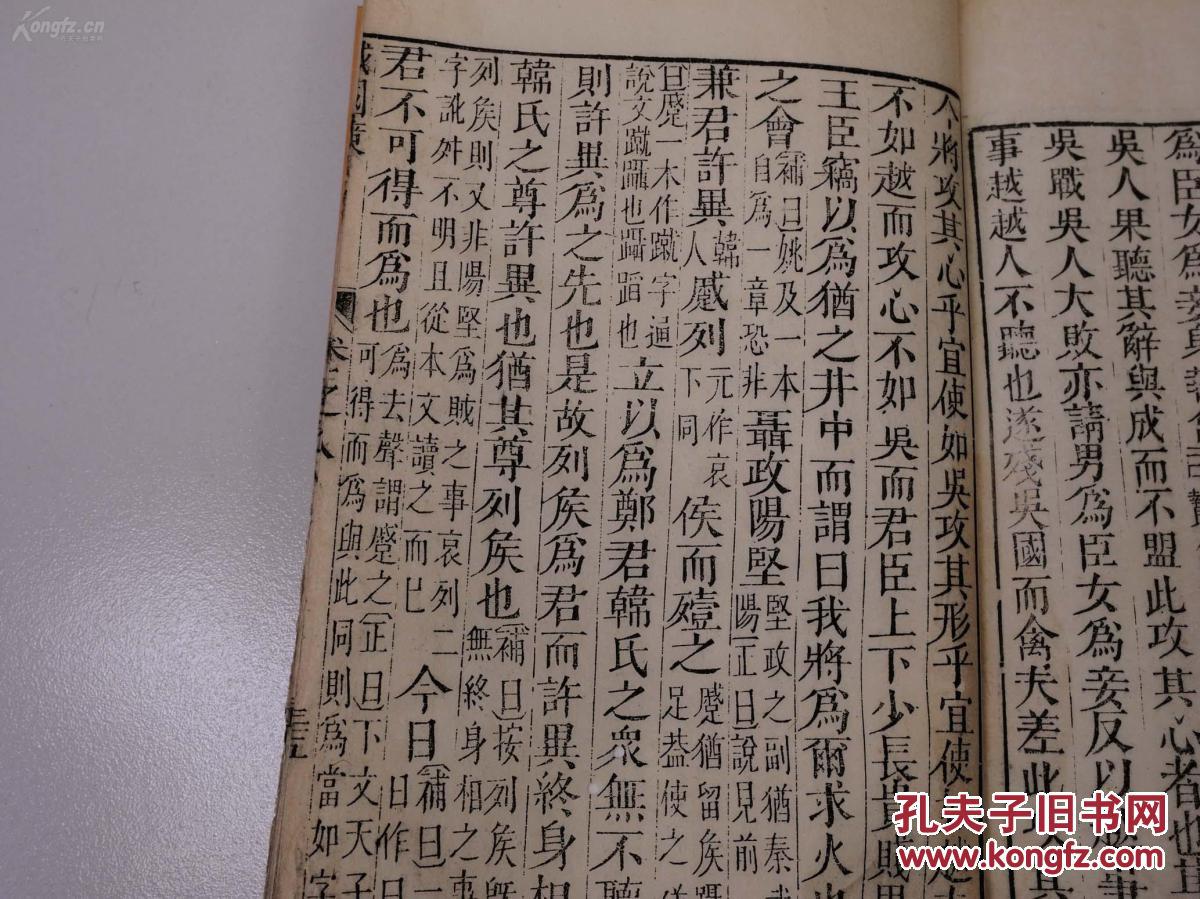 吳人果聽其辭與成而不盟此攻其心者也
吳戰吳人大敗亦請男爲臣女爲妾反以
事越越人不聽也遂殘吳國而禽夫差此
將攻其心乎宜使如吳攻其形乎宜使
不如越而攻心不如吳而君臣上下少長貴賤
王臣竊以爲猶之井中而謂曰我將爲爾求火也
之會補曰姚及一本自爲一章恐非聶政陽堅堅政之副猶秦陽正曰說見前
兼君許異韓人蹙列元作哀下同侯而殪之蹙猶留矦躡足葢使之
曰蹙一本作蹴字通說文蹴躡也躡蹈也立以爲鄭君韓氏之衆無不聽
則許異爲之先也是故列矦爲君而許異終身相
韓氏之尊許異也猶其尊列矦也補曰按列矦無終身相之事
列矦則又非陽堅爲賊之事哀列二字訛舛不明且從本文讀之而巳今日補曰一日作曰
君不可得而爲也爲去聲謂蹙之正曰下文天子可得而爲與此同則爲當如字
Kongfz.cn
孔夫子旧书网
www.kongfz.com